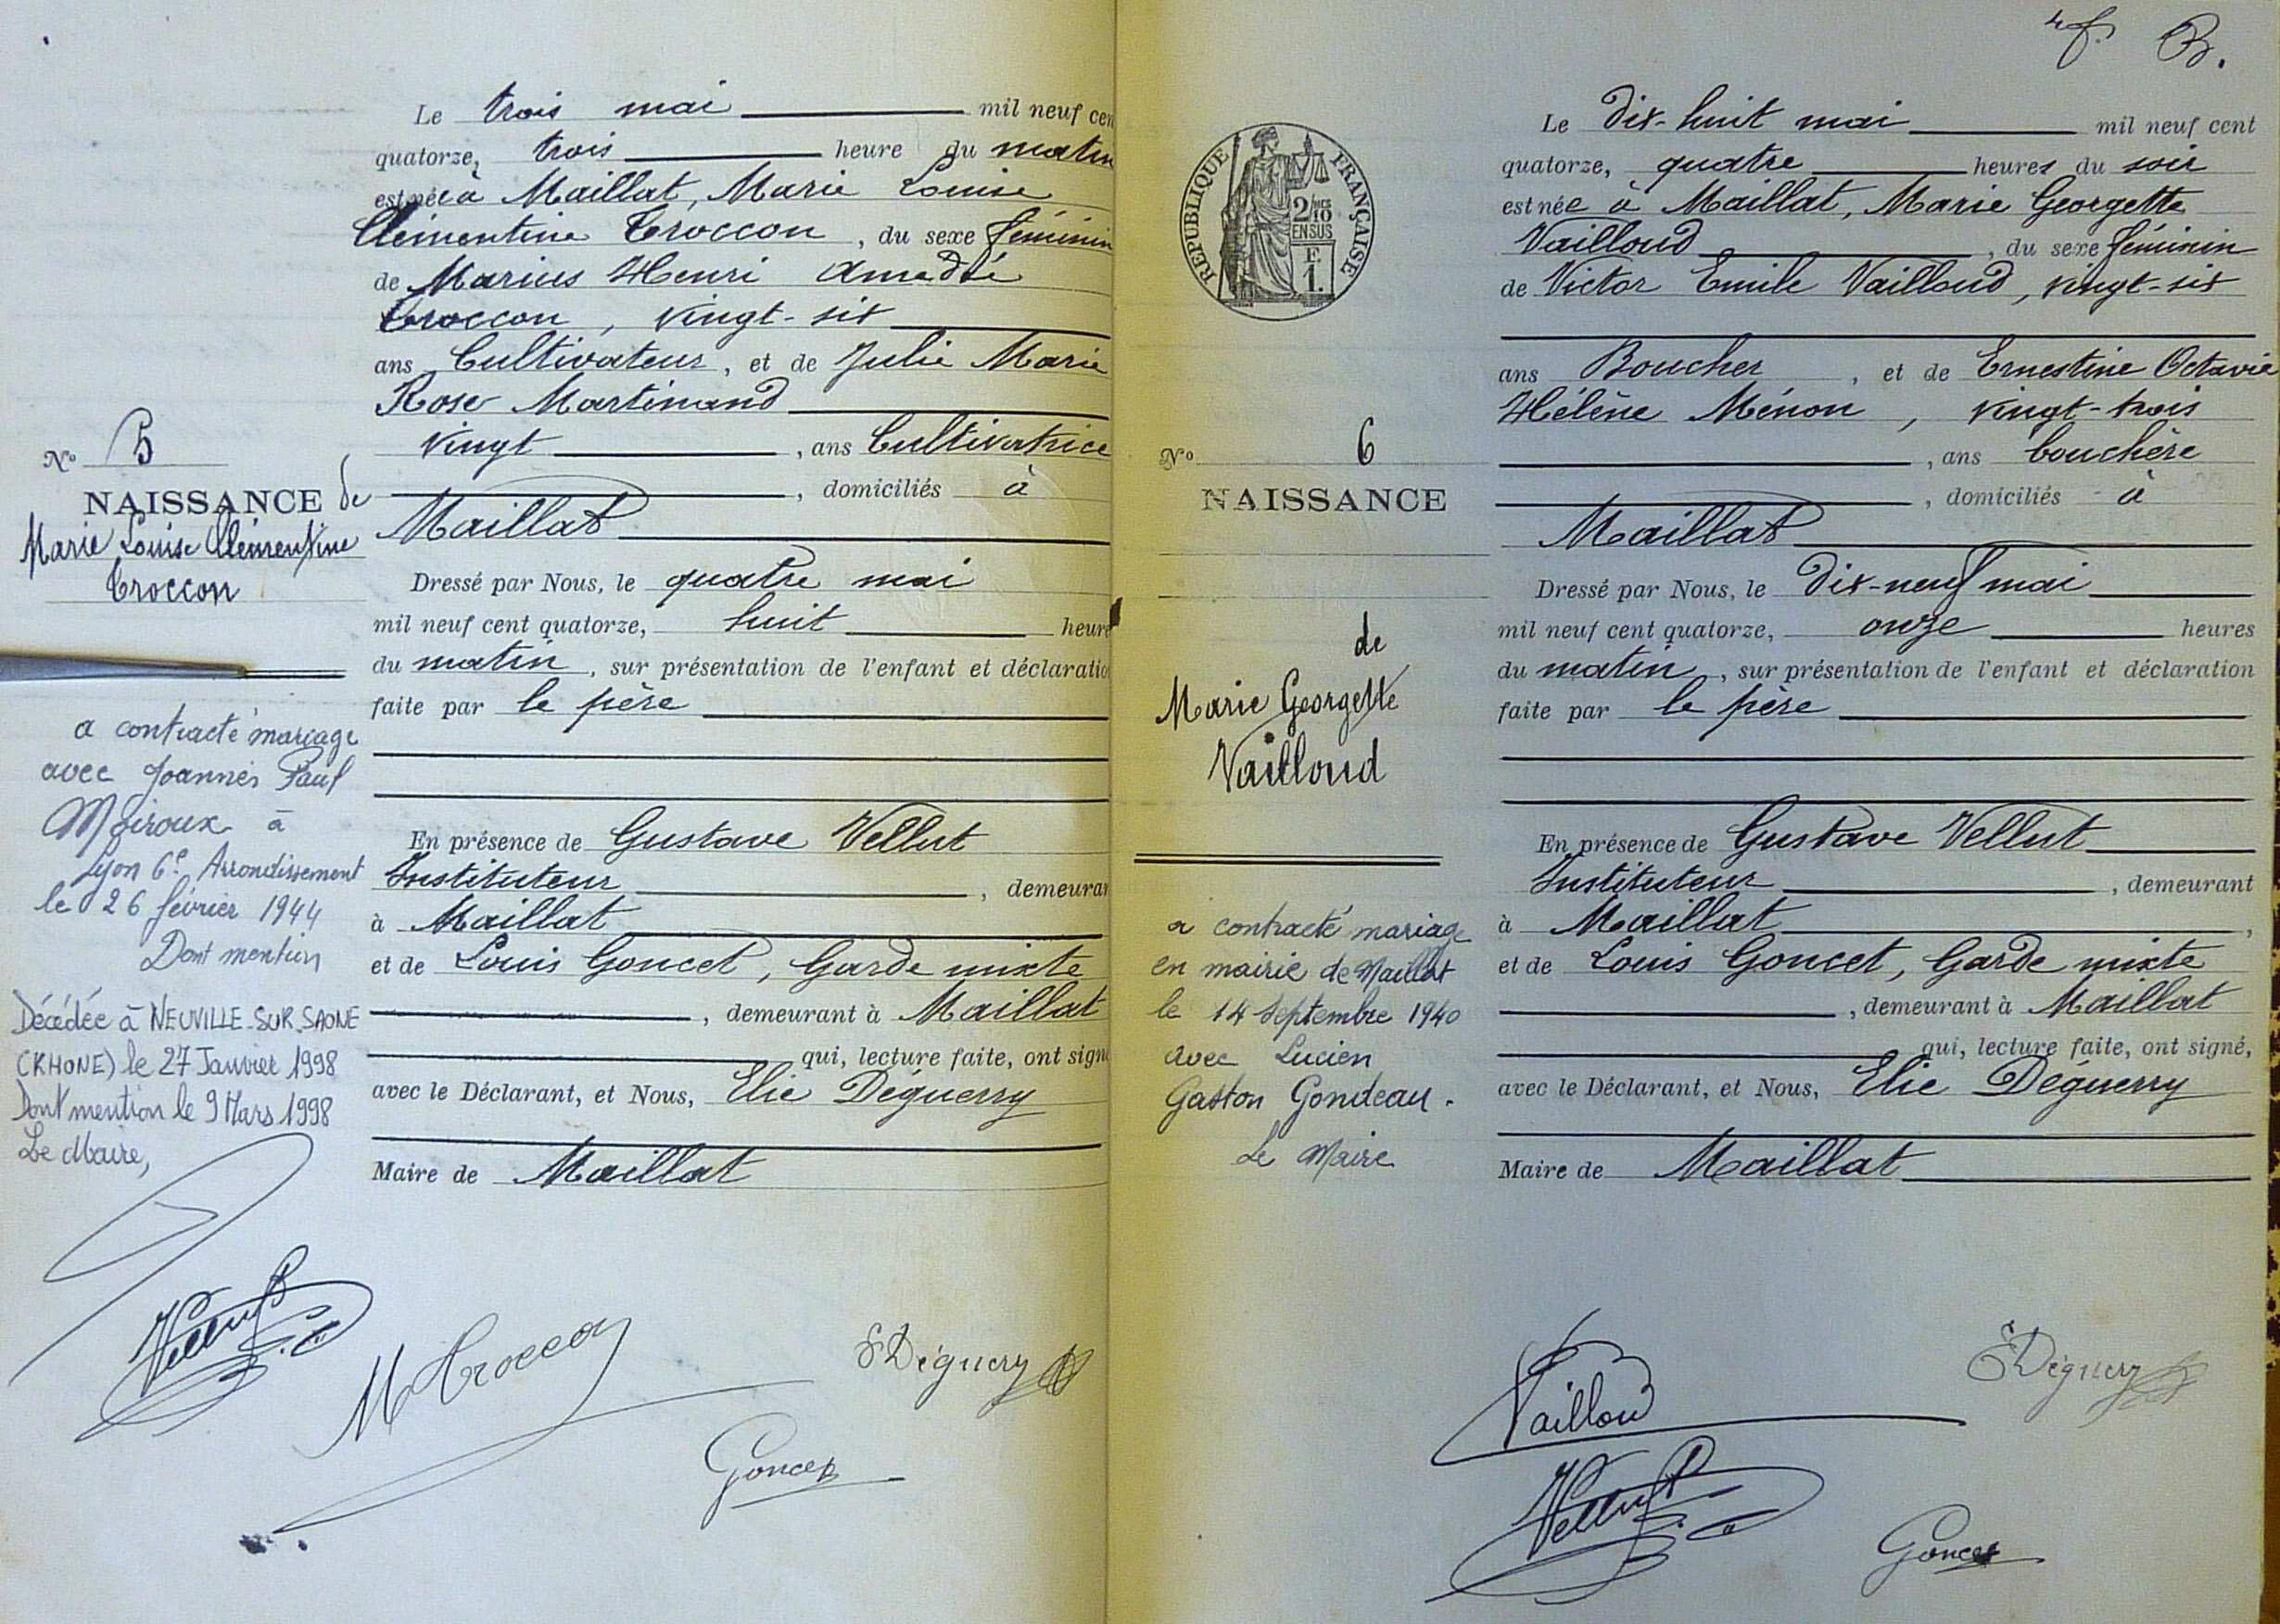 Le trois mai mil neuf cen
quatorze, trois heure du matin
est née à Maillat, Marie Louise
Clémentine Troccon, du sexe féminin
de Marius Henri Amedée
Troccon, vingt-six
ans Cultivateur, et de Julie Marie
Rose Martinand
vingt, ans Cultivatrice
, domiciliés à
Maillat
Dressé par Nous, le quatre mai
mil neuf cent quatorze, huit heure
du matin, sur présentation de l'enfant et déclaratio
faite par le père
En présence de Gustave Vellut
Instituteur, demeuran
à Maillat
et de Louis Goncet, Garde mixte
, demeurant à Maillat
qui, lecture faite, ont signé
avec le Déclarant, et Nous, Elie Déguerry
Maire de Maillat
N° 5
NAISSANCE de
Marie Louise Clémentine
Troccon
a contracté mariage
avec Joannès Paul
Moiroux à
Lyon 6e Arrondissement
le 26 février 1944
Dont mention
Décédée à NEUVILLE-SUR-SAONE
(RHONE) le 27 Janvier 1998
Dont mention le 9 Mars 1998
Le Maire,
Vellut
M Troccon
E Déguerry
Goncet
B.
RÉPUBLIQUE FRANÇAISE
2/10
EN SUS
F.
1.
Le dix-huit mai mil neuf cent
quatorze, quatre heures du soir
est née à Maillat, Marie Georgette
Vailloud, du sexe féminin
de Victor Emile Vailloud, vingt-six
ans Boucher, et de Ernestine Octavie
Hélène Ménon, vingt-trois
, ans bouchère
, domiciliés à
Maillat
Dressé par Nous, le dix-neuf mai
mil neuf cent quatorze, onze heures
du matin, sur présentation de l'enfant et déclaration
faite par le père
En présence de Gustave Vellut
Instituteur, demeurant
à Maillat,
et de Louis Goncet, Garde mixte
, demeurant à Maillat
qui, lecture faite, ont signé,
avec le Déclarant, et Nous, Elie Déguerry
Maire de Maillat
N° 6
NAISSANCE
de
Marie Georgette
Vailloud
a contracté mariage
en mairie de Maillat
le 14 Septembre 1940
avec Lucien
Gaston Gondeau.
Le Maire
Vailloud
E Déguerry
Vellut
Goncet